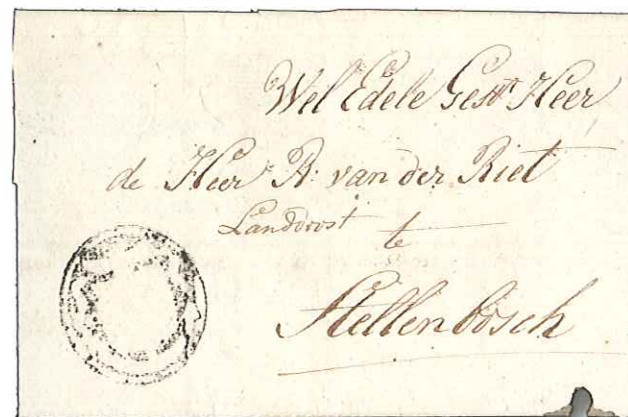 Wel Edele Gestr Heer
de Heer R. van der Riet
Landdrost
te
Stellenbosch